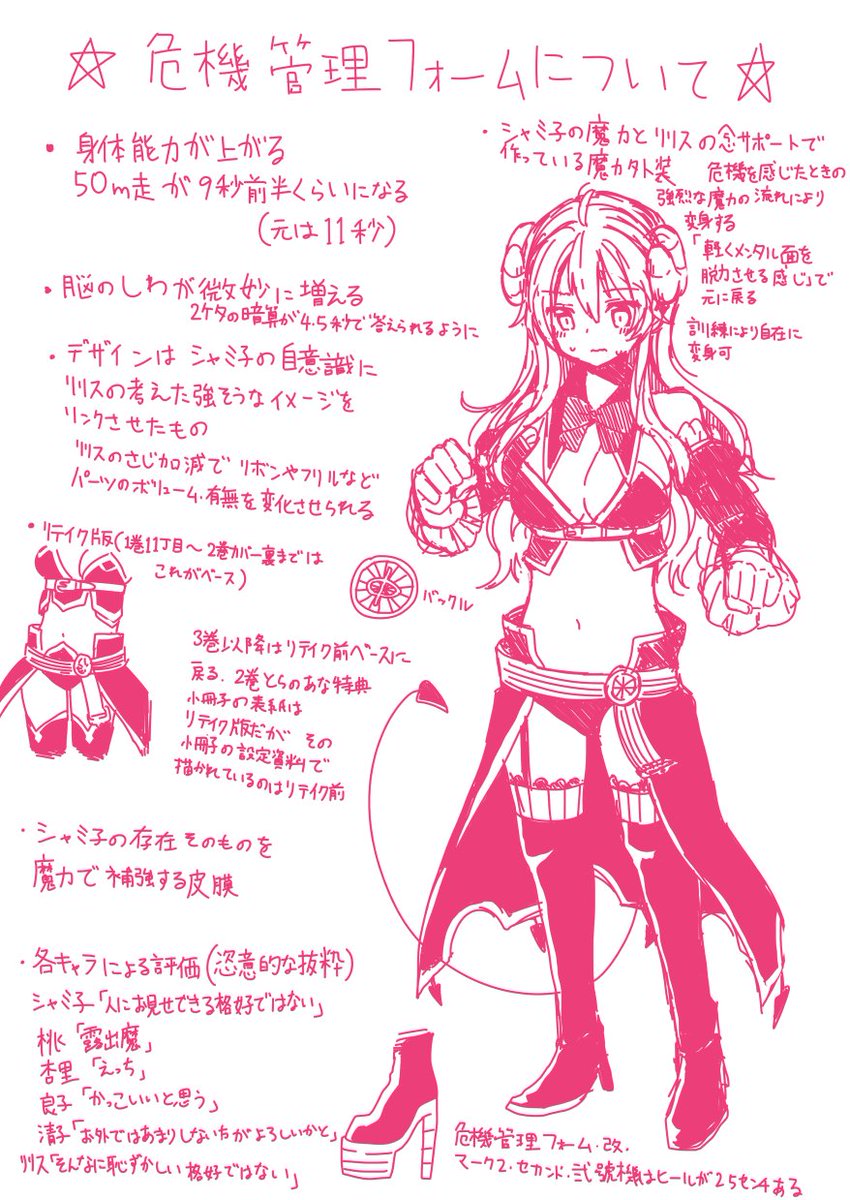 ☆ 危機管理フォームについて ☆
・身体能力が上がる
50m走が9秒前半くらいになる
(元は11秒)
・脳のしわが微妙に増える
2ケタの暗算が4.5秒で答えられるように
・デザインは シャミ子の自意識に
リリスの考えた強そうなイメージを
リンクさせたもの
リリスのさじ加減で リボンやフリルなど
パーツのボリューム・有無を変化させられる
・リテイク版(1巻11丁目〜2巻カバー裏までは
これがベース)
バックル
3巻以降はリテイク前ベースに
戻る. 2巻とらのあな特典
小冊子の表紙は
リテイク版だが その
小冊子の設定資料で
描かれているのはリテイク前
・シャミ子の存在そのものを
魔力で補強する皮膜
・各キャラによる評価(恣意的な抜粋)
シャミ子「人にお見せできる格好ではない」
桃「露出魔」
杏里「えっち」
良子「かっこいいと思う」
清子「お外ではあまりしない方がよろしいかと」
リリス「そんなに恥ずかしい格好ではない」
・シャミ子の魔力とリリスの念サポートで
作っている魔力外装
危機を感じたときの
強烈な魔力の流れにより
変身する
「軽くメンタル面を
脱力させる感じ」で
元に戻る
訓練により自在に
変身可
危機管理フォーム・改・
マーク2・セカンド・弐號機はヒールが25センチある